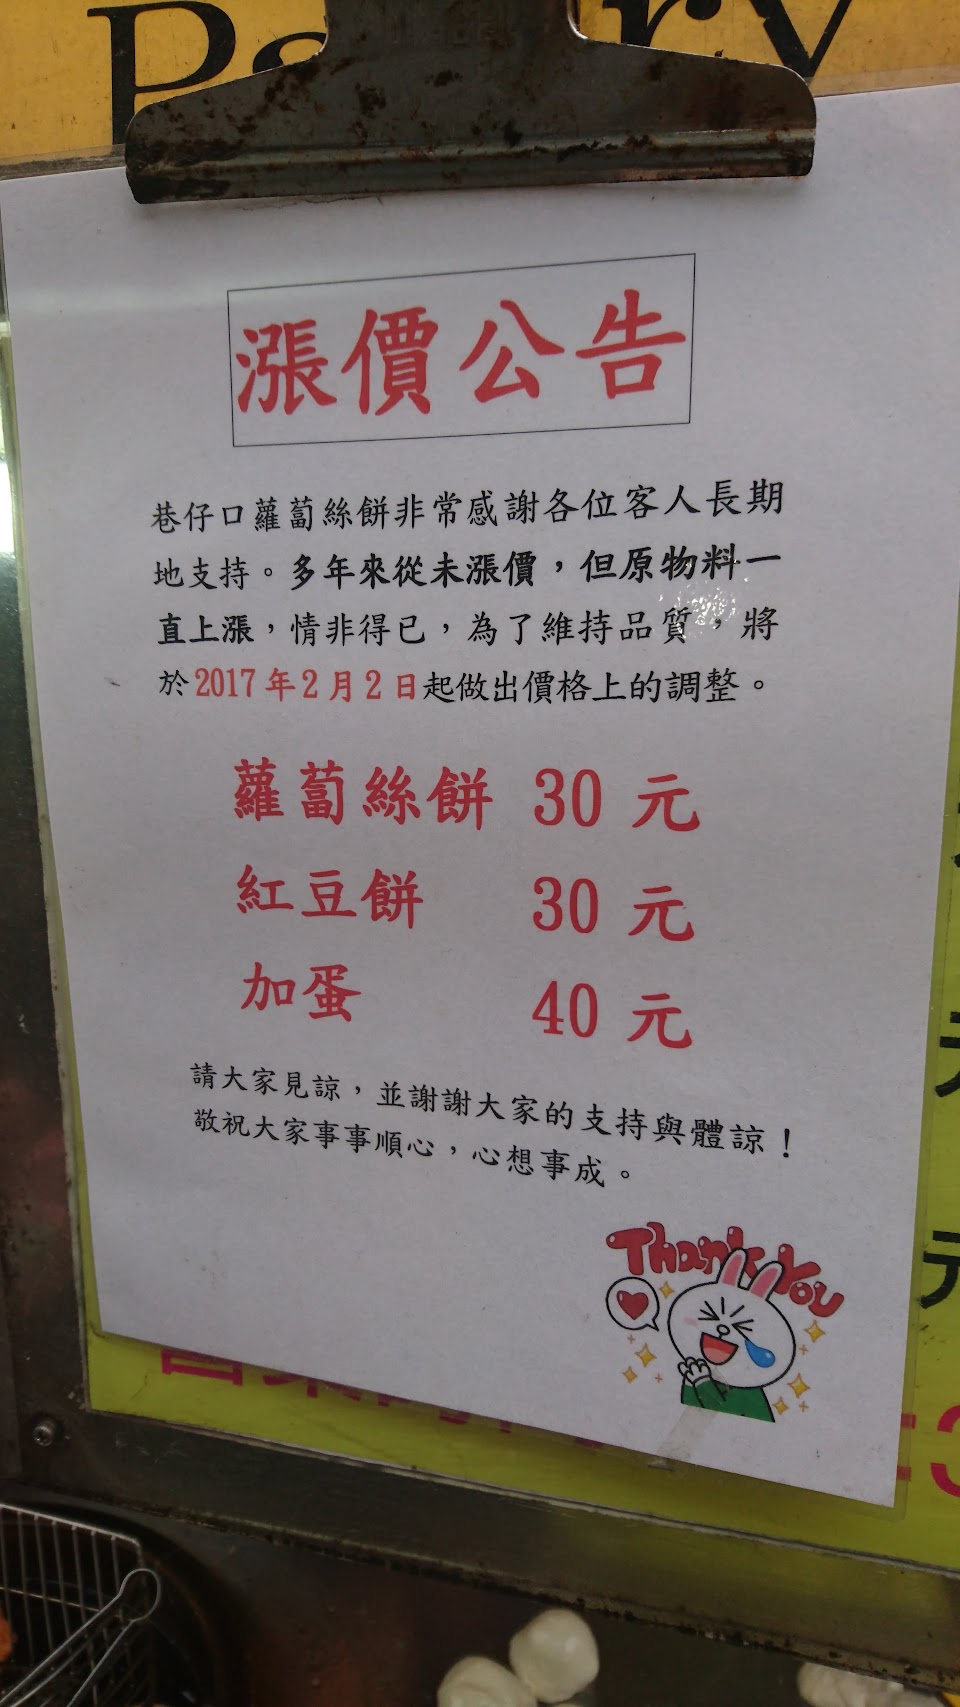 漲價公告
巷仔口蘿蔔絲餅非常感謝各位客人長期
地支持。多年來從未漲價，但原物料一
直上漲，情非得已，為了維持品質，將
於2017年2月2日起做出價格上的調整。
蘿蔔絲餅 30 元
紅豆餅 30 元
加蛋 40 元
請大家見諒，並謝謝大家的支持與體諒！
敬祝大家事事順心，心想事成。
Thank You